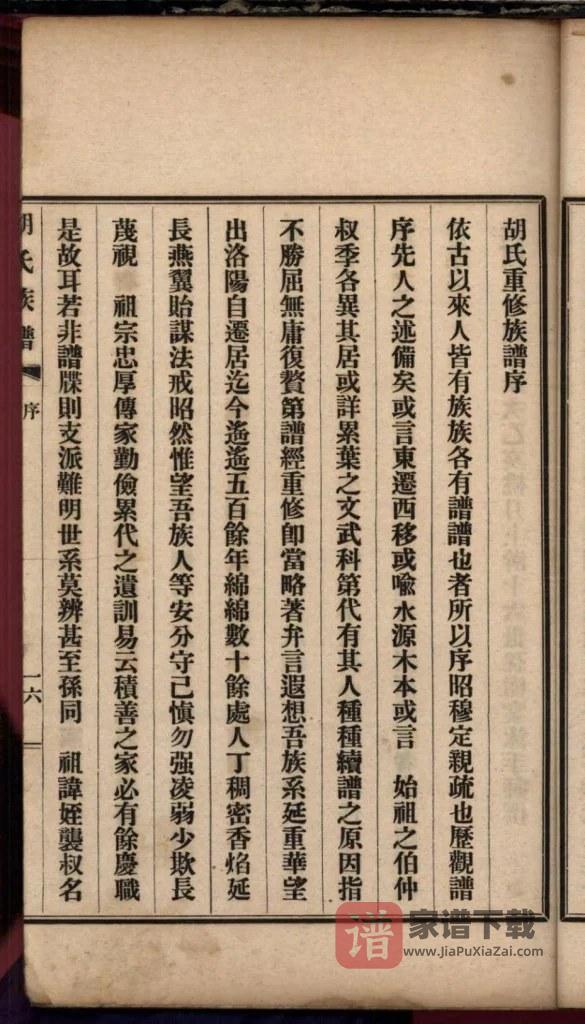 胡氏重修族譜序
依古以來人皆有族族各有譜譜也者所以序昭穆定親疏也歷觀譜
序先人之述備矣或言東遷西移或喻水源木本或言　始祖之伯仲
叔季各異其居或詳累葉之文武科第代有其人種種續譜之原因指
不勝屈無庸復贅第譜經重修卽當略著弁言遐想吾族系延重華望
出洛陽自遷居迄今遙遙五百餘年綿綿數十餘處人丁稠密香焰延
長燕翼貽謀法戒昭然惟望吾族人等安分守己慎勿强凌弱少欺長
蔑視　祖宗忠厚傳家勤儉累代之遺訓易云積善之家必有餘慶職
是故耳若非譜牒則支派難明世系莫辨甚至孫同　祖諱姪襲叔名
胡氏族譜　序　一六
谱 家谱下载
www.JiaPuXiaZai.com